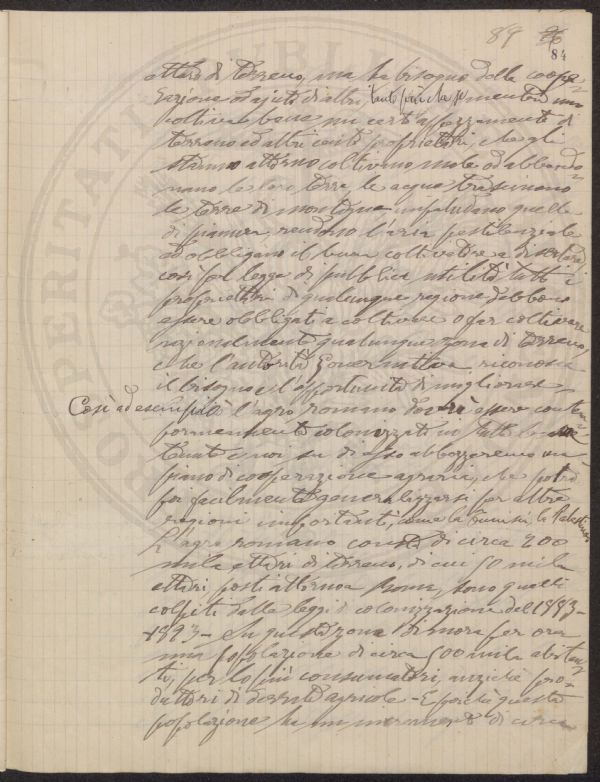 89 86
84
ettero di terreno, ma ha bisogno della coope-
razione ed ajuto di altri, tanto più che se mentre uno
coltiva bene un certo appezzamento di
terreno ed altri cento proprietari, che gli
stanno attorno coltivano male od abbando-
nano le loro terre, le acque trascinano
le terre di montagna impaludano quelle
di pianura, rendono l'aria pestilenziale
ed obbligano il buon coltivatore a disertare
così per legge di pubblica utilità tutti i
proprietari di qualunque regione debbono
essere obbligati a coltivare o far coltivare
razionalmente qualunque zona di terreno,
che l'autorità governativa, riconosca
il bisogno e l'opportunità di migliorare
Così ad esempio l'agro romano dovrà essere contem-
poraneamente colonizzato in tutta la sua
e noi su di esso abbozzeremo un
piano di cooperazione agraria, che potrà
poi facilmente generalizzarsi per altre
regioni importanti, come la Tunisia, la Palestina
L'agro romano consta di circa 200
mila ettari di terreno, di cui 50 mila
ettari posti attorno a Roma, sono quelli
colpiti dalle leggi di colonizzazione del 1883-
-1893- In questa zona dimora per ora
una popolazione di circa 500 mila abitan-
ti, per lo più consumatori, anziché pro-
duttori di derrate agricole - E poiché questa
popolazione ha un incremento di circa